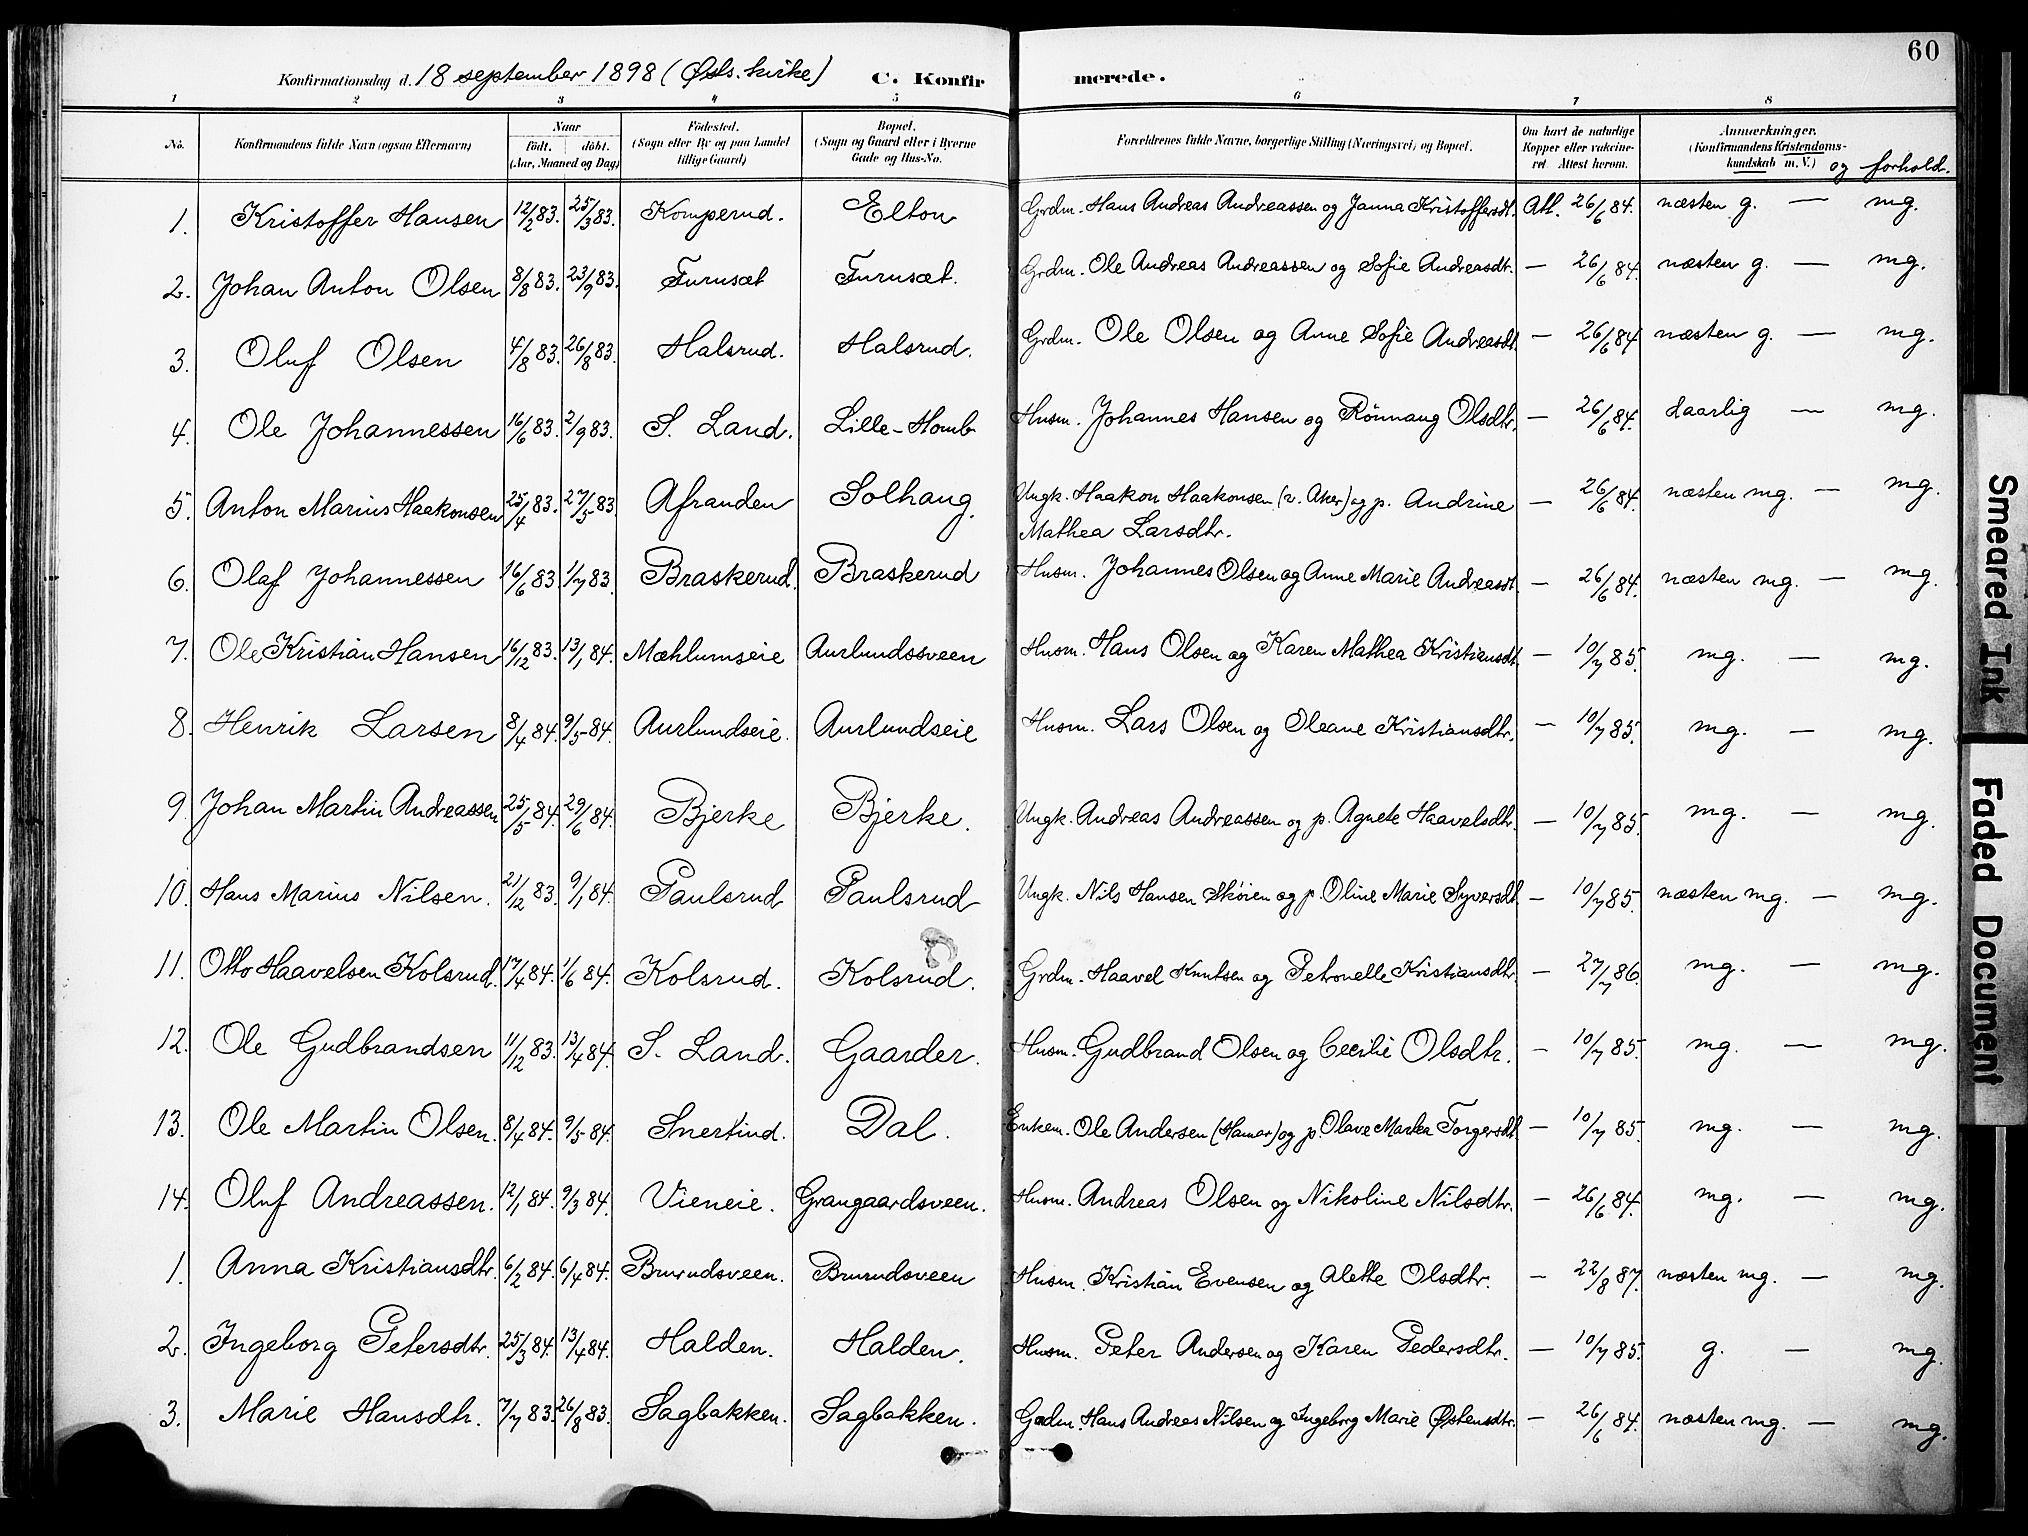 60
Konfirmationsdag d. 18 september 1898 (Øsls. kirke) C. Konfirmerede.
1 2 3 4 5 6 7 8
No. Konfirmandens fulde Navn (ogsaa Efternavn) Naar født. døbt. (Aar, Maaned og Dag) Fødested. (Sogn eller By og paa Landet tillige Gaard) Bopæl. (Sogn og Gaard eller i Byerne Gade og Hus-No. Forældrenes fulde Navne, borgerlige Stilling (Næringsvei) og Bopæl. Om havt de naturlige Kopper eller vaccineret Attest herom. Anmærkninger. (Konfirmandens Kristendomskundskab m. V.) og forhold.
1. Kristoffer Hansen 12/2 83. 25/3 83. Komperud. Elton Grdm. Hans Andreas Andreassen og Janna Kristoffersdt. Att. 26/6 84. næsten g. — mg.
2. Johan Anton Olsen 8/8 83. 23/9 83. Furusæt Furusæt. Grdm. Ole Andreas Andreassen og Sofie Andreasdtr. — 26/6 84. næsten g. — mg.
3. Oluf Olsen 4/8 83. 26/8 83. Halsrud. Halsrud. Grdm. Ole Olsen og Anne Sofie Andreasdt. — 26/6 84 næsten g. — mg.
4. Ole Johannessen 16/6 83. 2/9 83. S. Land. Lille-Homb Husm. Johannes Hansen og Rönnaug Olsdtr. — 26/6 84. daarlig — mg.
5. Anton Marius Haakonsen 25/4 83. 27/5 83. Afranden Solhaug. Ungk. Haakon Haakonsen (v. Aker) og p. Andrine — 26/6 84. næsten mg. — mg.
Mathea Larsdtr.
6. Olaf Johannessen 16/6 83 1/7 83. Braskerud. Braskerud Husm. Johannes Olsen og Anne Marie Andreasdt. — 26/6 84. næsten mg. — mg.
7. Ole Kristian Hansen 16/12 83. 13/1 84. Mæhlumseie Aurlundssveen Husm. Hans Olsen og Karen Mathea Kristiansdt. — 10/7 85. mg. — mg.
8. Henrik Larsen 8/4 84. 9/5 84. Aurlundseie. Aurlundseie Husm. Lars Olsen og Oleane Kristiansdtr. — 10/7 85. mg. — mg.
9. Johan Martin Andreassen 25/5 84. 29/6 84. Bjerke Bjerke. Ungk. Andreas Andreassen og p. Agnete Haavelsdtr. — 10/7 85. mg. — mg.
10. Hans Marius Nilsen. 21/12 83. 9/1 84. Paulsrud Paulsrud Ungk. Nils Hansen Skøien og p. Oline Marie Syversdt. — 10/7 85. næsten mg. — mg.
11. Otto Haavelsen Kolsrud. 17/4 84. 1/6 84. Kolsrud. Kolsrud. Grdm. Haavel Knutsen og Petronelle Kristiansdtr. — 27/7 86. mg. — mg.
12. Ole Gudbrandsen 11/12 83. 13/4 84. S. Land. Gaarder. Husm. Gudbrand Olsen og Cecilie Olsdtr. — 10/7 85. mg. — mg.
13. Ole Martin Olsen. 8/4 84. 9/5 84. Snertind. Dal. Enkem. Ole Andersen (Hamar) og p. Olave Marthea Torgersdt. — 10/7 85. mg. — mg.
14. Oluf Andreassen. 12/1 84. 9/3 84. Vieneie. Grangaardsveen. Husm. Andreas Olsen og Nikoline Nilsdtr. — 26/6 84. mg. — mg.
1. Anna Kristiansdtr. 6/2 84. 6/4 84. Brurudsveen. Brurudsveen Husm. Kristian Evensen og Alette Olsdtr. — 22/8 87. næsten mg. — mg.
2. Ingeborg Petersdtr. 25/3 84. 13/4 84. Halden. Halden. Husm. Peter Andersen og Karen Pedersdtr. — 10/7 85. g. — mg.
3. Marie Hansdtr. 7/7 83. 26/8 83. Sagbakken. Sagbakken. Gadm. Hans Andreas Nilsen og Ingeborg Marie Østensdtr. — 26/6 84. næsten mg. — mg.
Smeared Ink
Faded Document